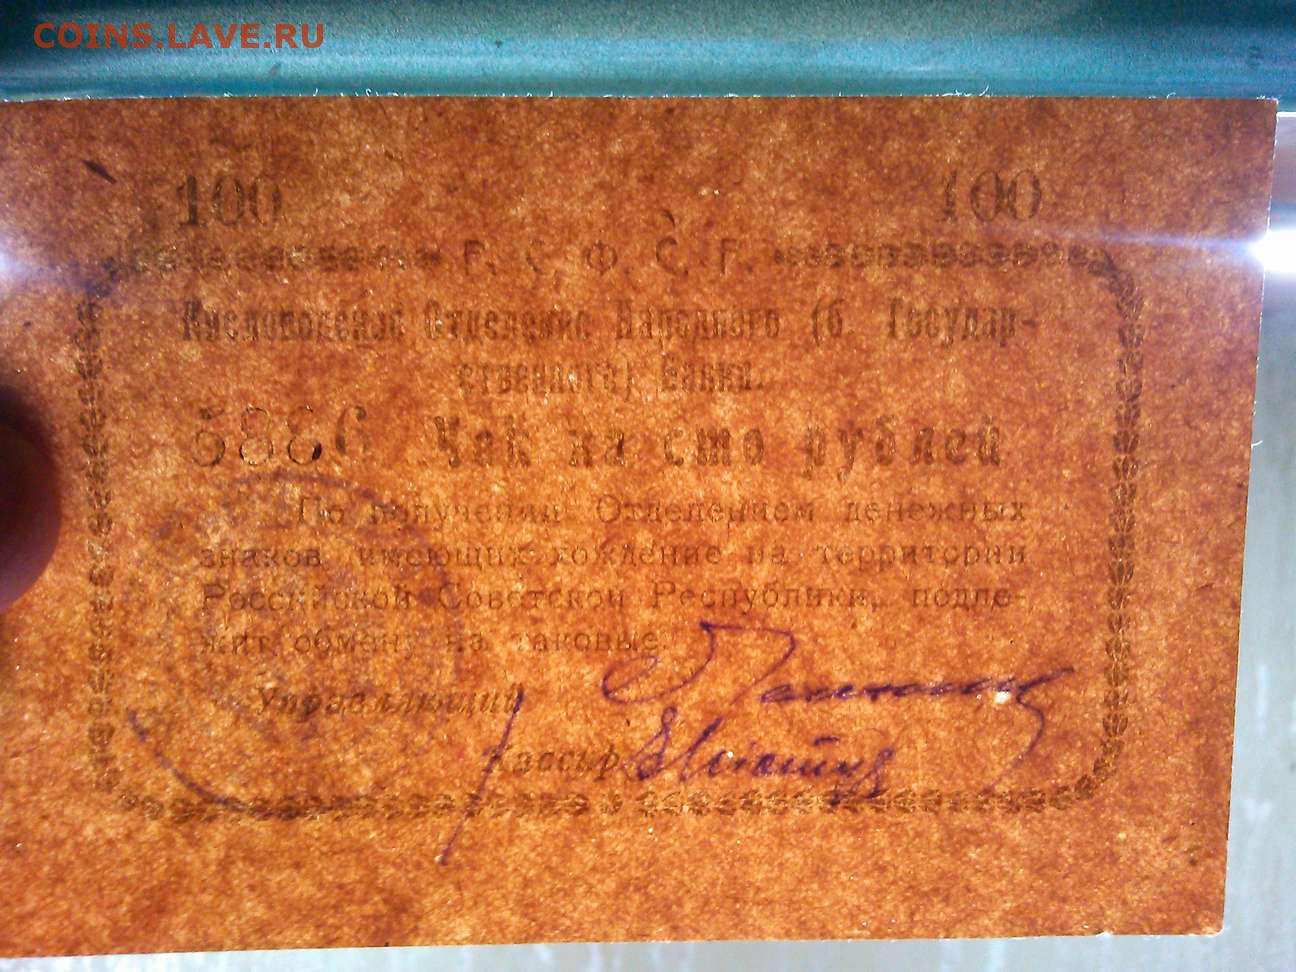 COINS.LAVE.RU
100 100
Р. С. Ф. С. Р.
Кисловодское Отделение Народного (б. Государ-
ственнаго) Банка.
Чек на сто рублей
По получении Отделением денежных
знаков, имеющих хождение на территории
Российской Советской Республики, подле-
жит обмену на таковые.
Управляющий
Кассир